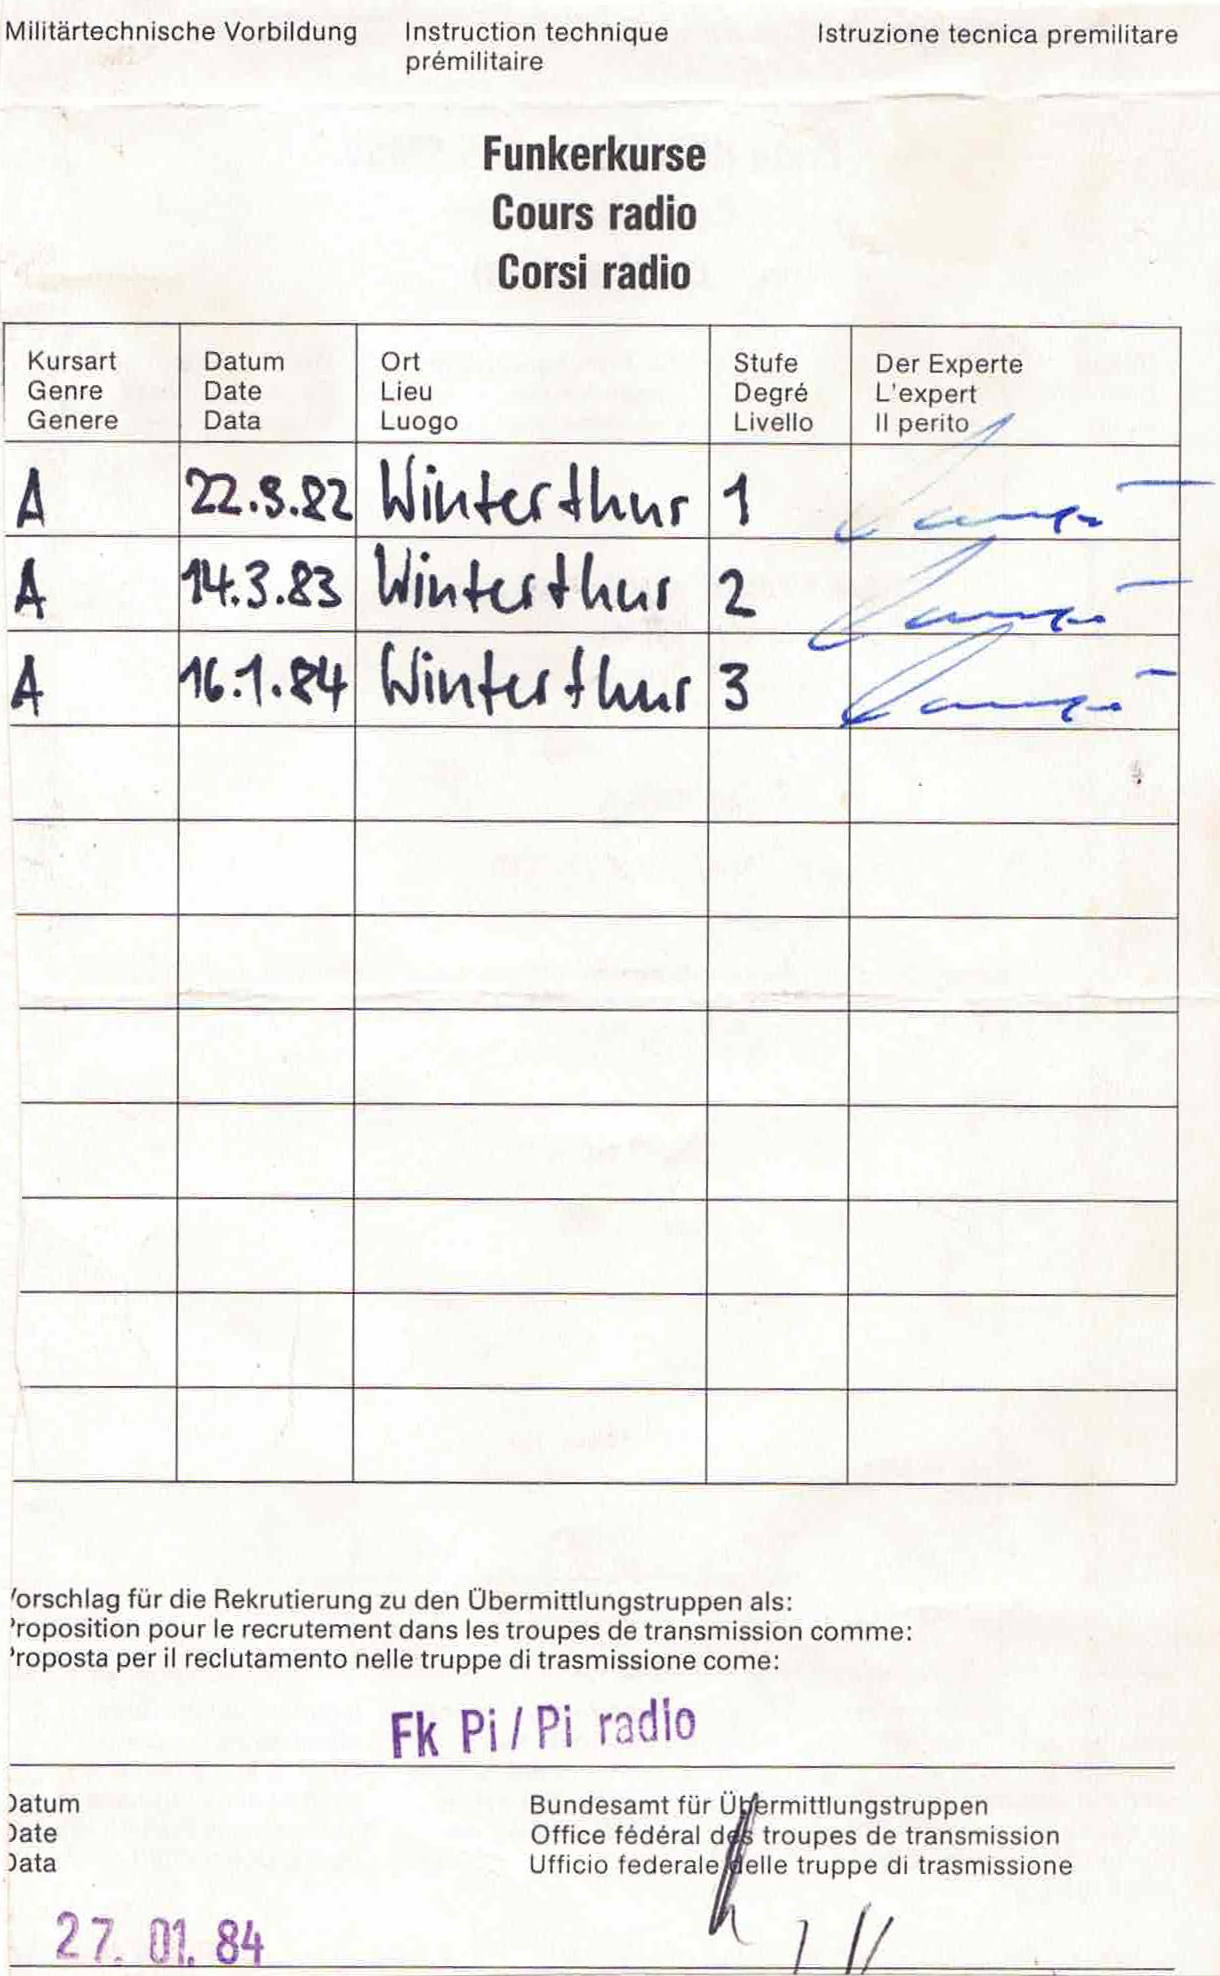 Militärtechnische Vorbildung Instruction technique prémilitaire Istruzione tecnica premilitare
Funkerkurse
Cours radio
Corsi radio
Kursart Datum Ort Stufe Der Experte
Genre Date Lieu Degré L'expert
Genere Data Luogo Livello Il perito
A 22.3.82 Winterthur 1
A 14.3.83 Winterthur 2
A 16.1.84 Winterthur 3
Vorschlag für die Rekrutierung zu den Übermittlungstruppen als:
Proposition pour le recrutement dans les troupes de transmission comme:
Proposta per il reclutamento nelle truppe di trasmissione come:
Fk Pi / Pi radio
Datum Bundesamt für Übermittlungstruppen
Date Office fédéral des troupes de transmission
Data Ufficio federale delle truppe di trasmissione
27. 01. 84